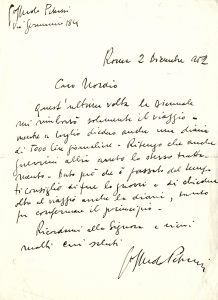 Goffredo Petrassi
Via Germanico 184
Roma 2 Dicembre 1952
Caro Nordio
Quest'altra volta la Biennale
mi rimborsò solamente il viaggio -
mentre a luglio diedero anche una diaria
di 5000 lire giornaliere. Ritengo che anche
Guerrini abbia avuto lo stesso tratta-
mento. Dato però che è passato del tempo
ti consiglio di fare lo gnorri e di chiedere
oltre al viaggio anche la diaria, tanto
per confermare il principio.
Ricordami alla Signora e ricevi
molti cari saluti
Goffredo Petrassi